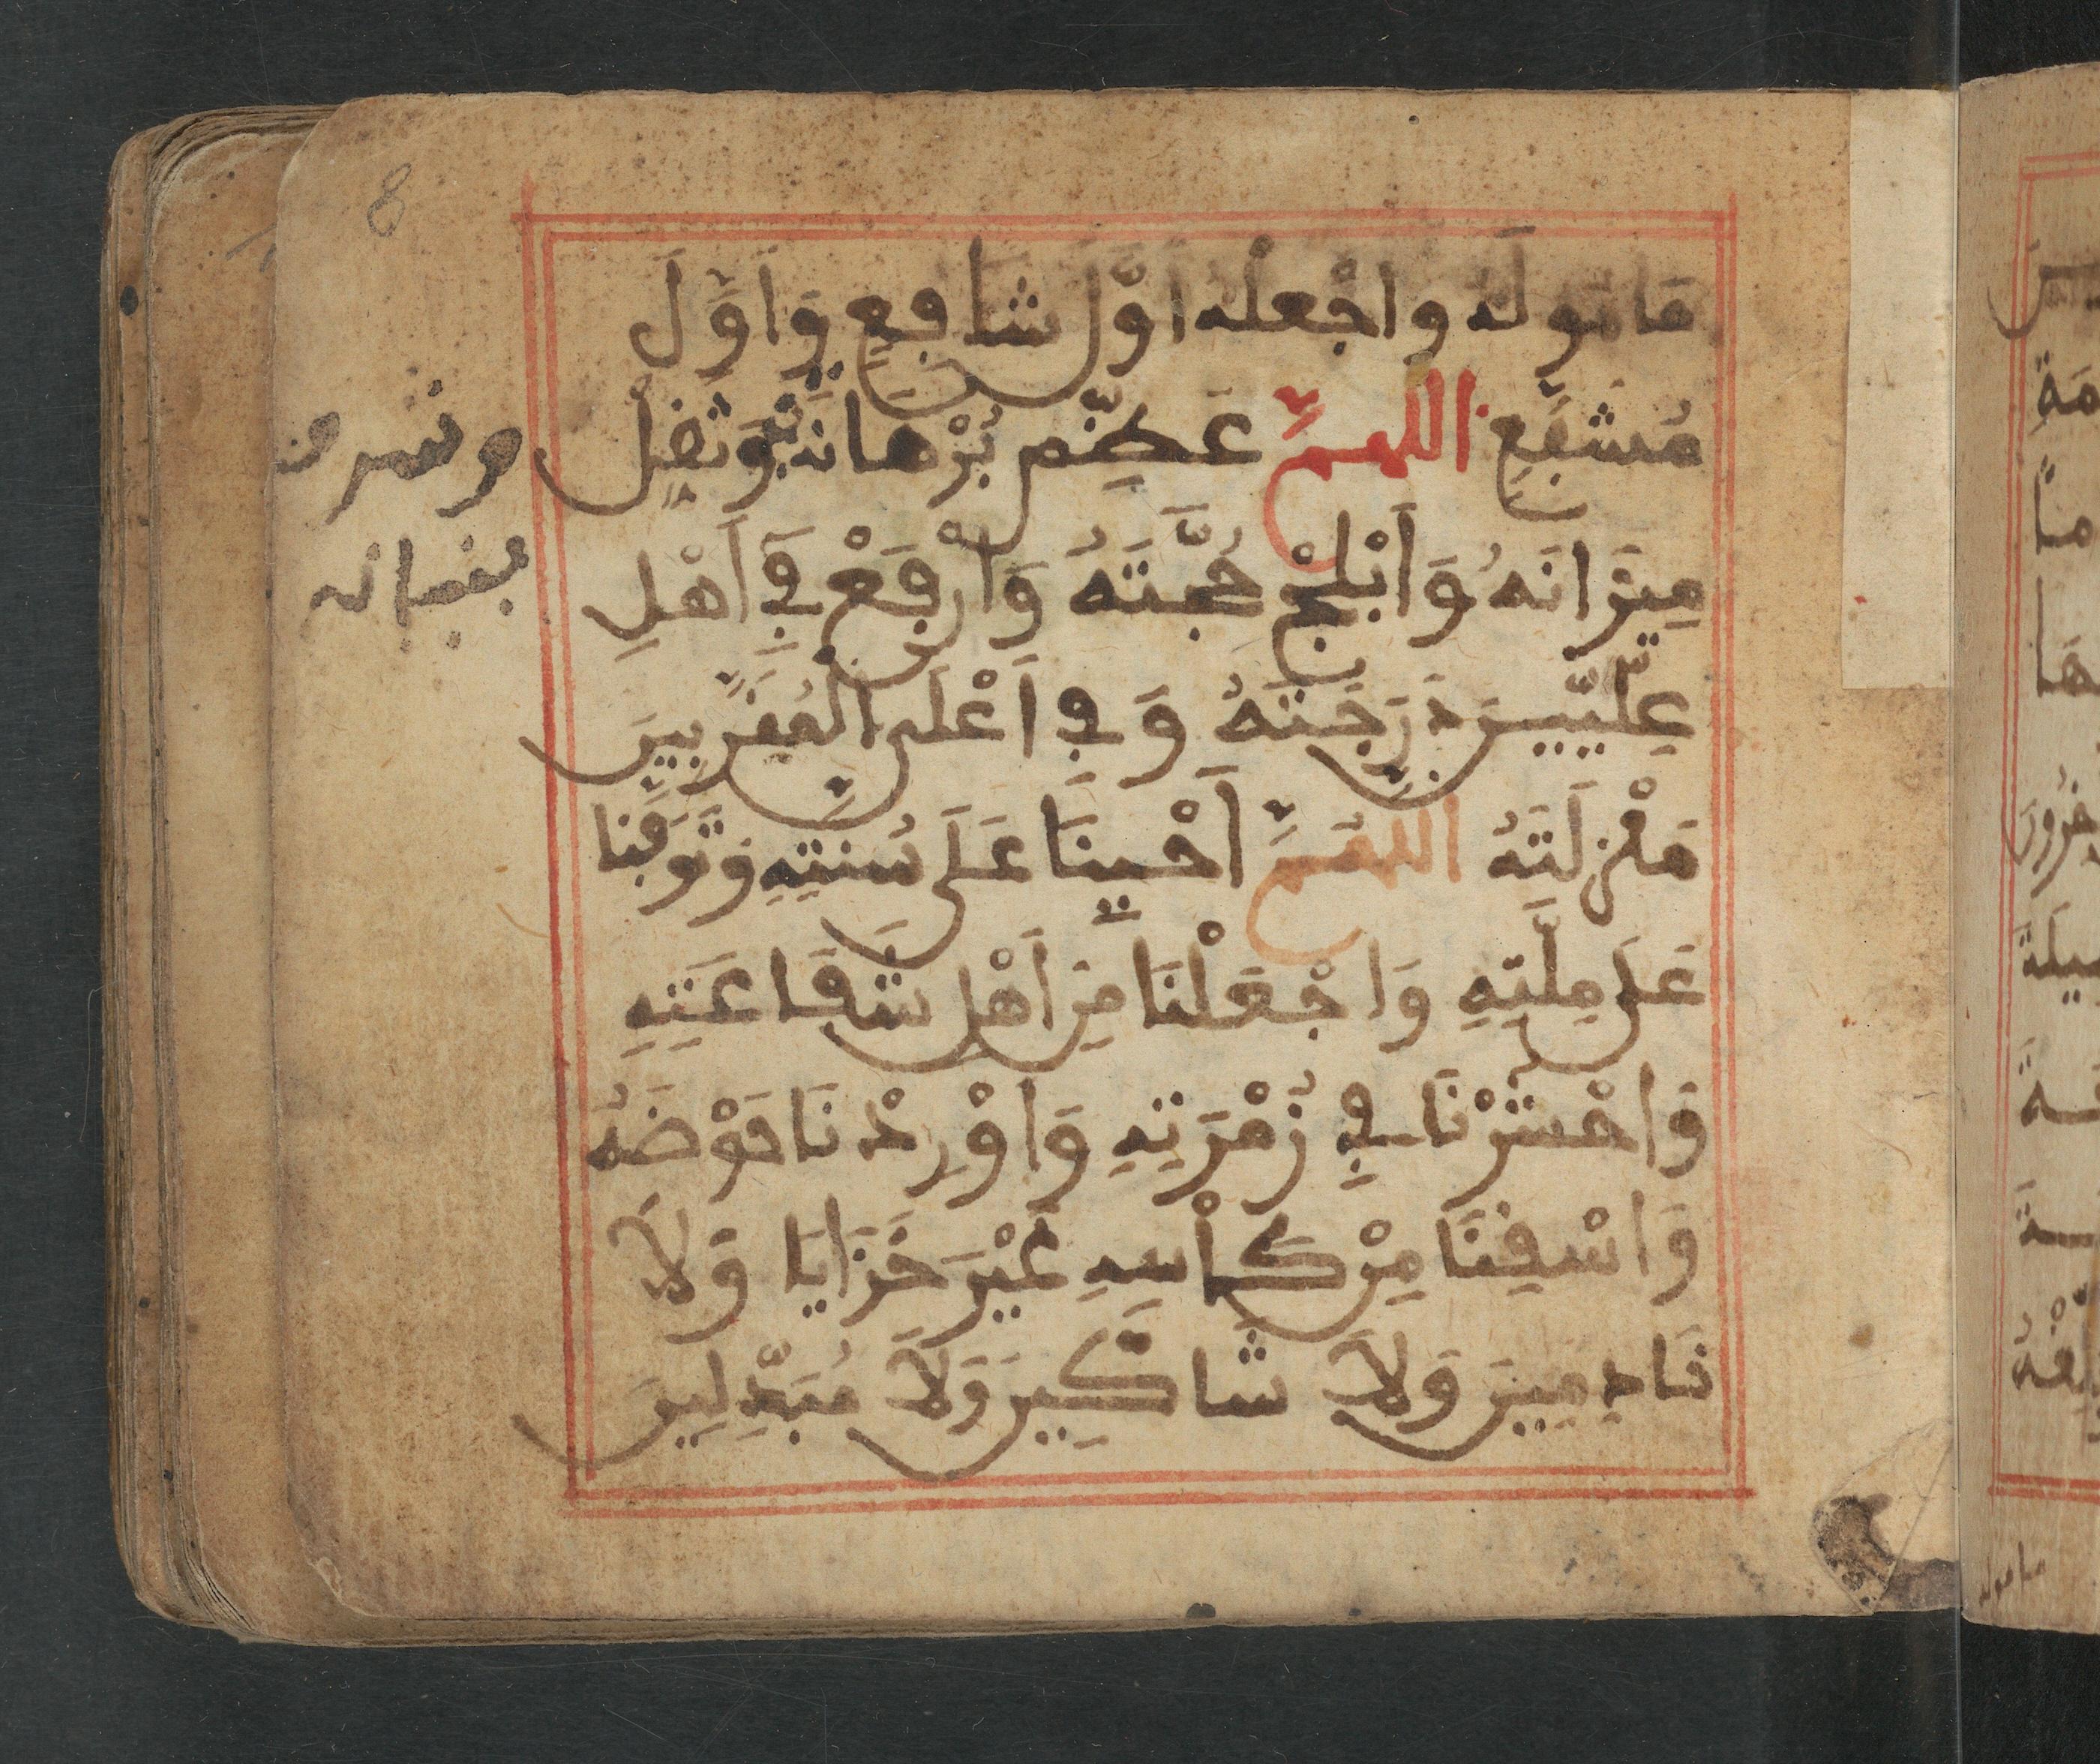 مَامُولَهُ وَاجْعَلْهُ اَوَّلَ شَافِعٍ وَاَوَّلَ
مُشَفَّعٍ اللَّهُمَّ عَظِّمْ بُرْهَانَهُ وَثَقِّلْ
مِيزَانَهُ وَاَبْلِجْ حُجَّتَهُ وَارْفَعْ فِي اَهْلِ
عِلِّيِّينَ دَرَجَتَهُ وَفِي اَعْلَى الْمُقَرَّبِينَ
مَنْزِلَتَهُ اللَّهُمَّ اَحْيِنَا عَلَى سُنَّتِهِ وَتَوَفَّنَا
عَلَى مِلَّتِهِ وَاجْعَلْنَا مِنْ اَهْلِ شَفَاعَتِهِ
وَاحْشُرْنَا فِي زُمْرَتِهِ وَاَوْرِدْنَا حَوْضَهُ
وَاسْقِنَا مِنْ كَأْسِهِ غَيْرَ خَزَايَا وَلَا
نَادِمِينَ وَلَا شَاكِّينَ وَلَا مُبَدِّلِينَ
8
ماموله